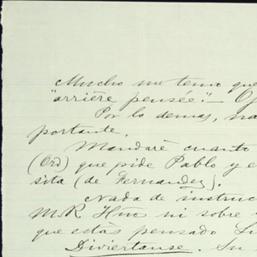 Mucho me temo que
"arrière pensée." — O
Por lo demas, na
portante.
Mandaré cuanto
(Ord) que pide Pablo y e
sita (de Fernandez).
Nada de instruc
M.R. Hno ni sobre
que estás pensado
Diviertanse. Su